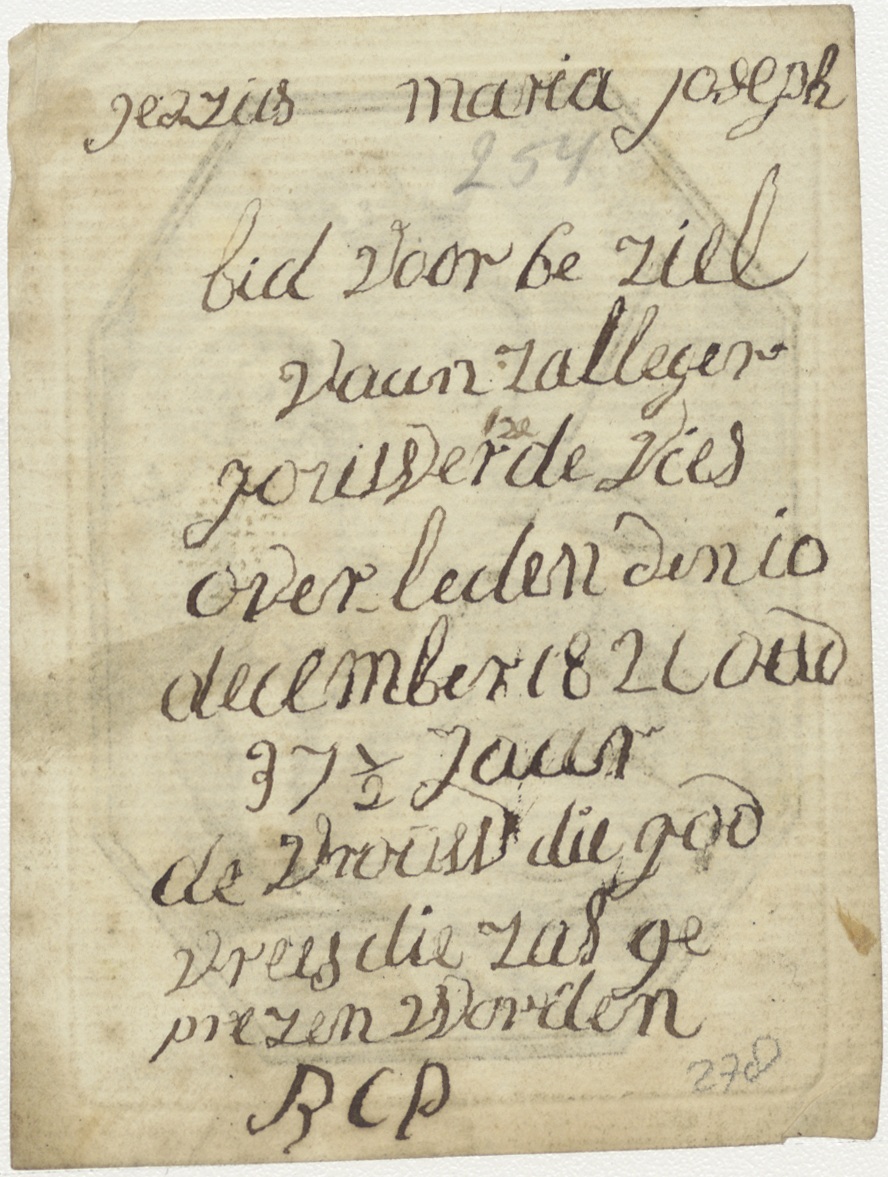 Jezzus maria joseph
254
bid voor be ziel
vaan zalleger
de vies
overleden den 10
december 1821 oud
37 1/2 Jaar
de vrouw die god
vrees die zal ge
prezen worden
R C P
278